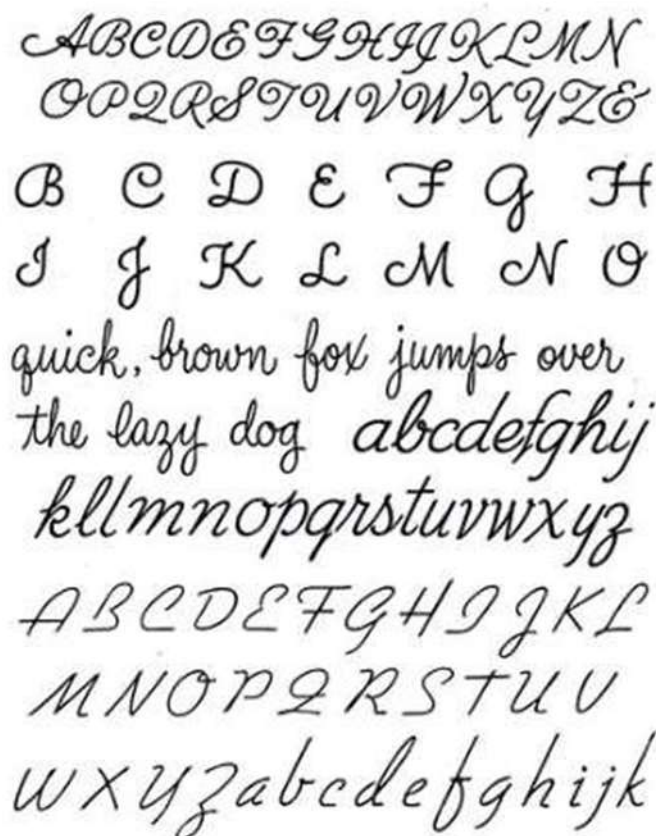 ABCDEFGHIJKLMN
OPQRSTUVWXYZ&
B C D E F G H
I J K L M N O
quick, brown fox jumps over
the lazy dog abcdefghij
kllmnopqrstuvwxyz
ABCDEFGHIJKL
MNOPQRSTUV
WXYZabcdefghijk